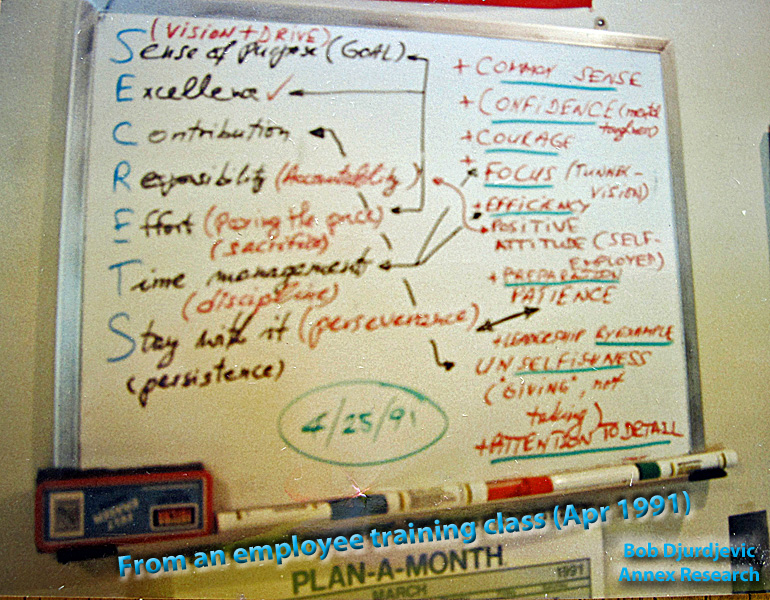 (VISION + DRIVE)
Sense of purpose (GOAL)
Excellence ✓
Contribution
Responsibility (Accountability)
Effort (paying the price)
(sacrifice)
Time management
(discipline)
Stay with it (perseverance)
(persistence)
4/25/91
+ COMMON SENSE
+ CONFIDENCE (mental
toughness)
+ COURAGE
+ FOCUS (TUNNEL-
VISION)
+ EFFICIENCY
POSITIVE
ATTITUDE (SELF-
EMPLOYED)
+ PREPARATION
PATIENCE
+ LEADERSHIP BY EXAMPLE
UNSELFISHNESS
("GIVING", not
taking)
+ ATTENTION TO DETAIL
From an employee training class (Apr 1991)
Bob Djurdjevic
Annex Research
PLAN-A-MONTH
1991
MARCH